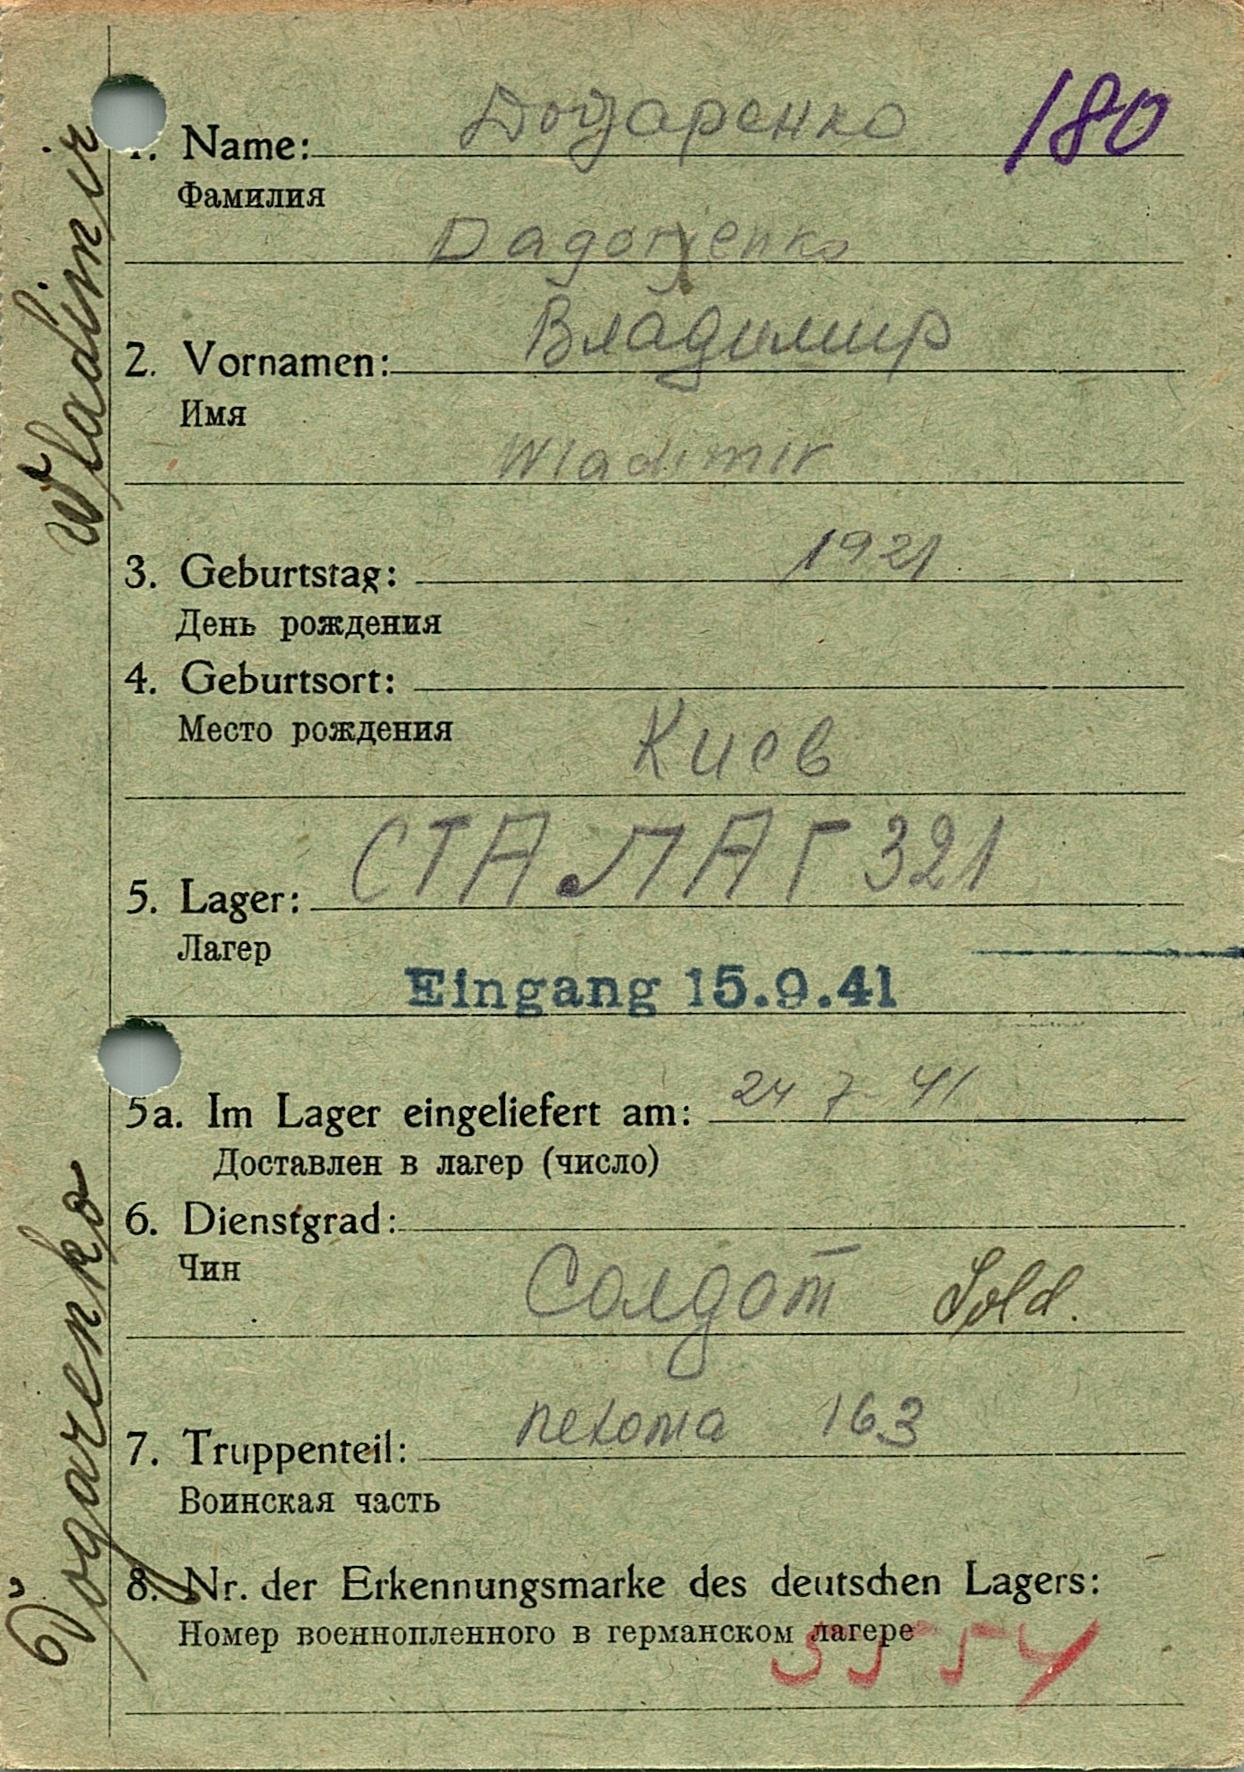 180
1. Name:
Фамилия
2. Vornamen: Владимир
Имя
Wladimir
3. Geburtstag: 1921
День рождения
4. Geburtsort:
Место рождения
Киев
5. Lager: СТАЛАГ 321
Лагер
Eingang 15.9.41
5a. Im Lager eingeliefert am: 24 7 41
Доставлен в лагер (число)
6. Dienstgrad:
Чин
Солдат Sold.
7. Truppenteil: пехота 163
Воинская часть
8. Nr. der Erkennungsmarke des deutschen Lagers:
Номер военнопленного в германском лагере
Wladimir